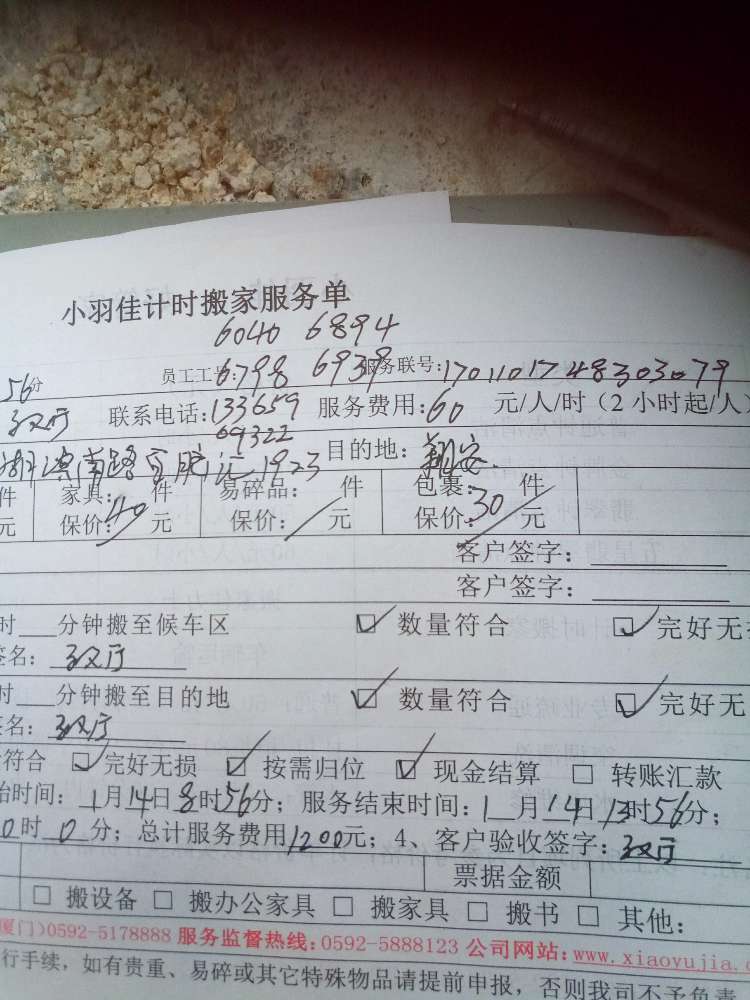 小羽佳计时搬家服务单
6040 6894
56分 员工工号:6798 6939 服务联号:17011017 48303079
联系电话:133659 服务费用:60 元/人/时（2小时起/人）
69322
湖滨南路 1923 目的地:翔安
件 家具: 件 易碎品: 件 包裹: 件
元 保价:40 元 保价: 元 保价:30 元
客户签字:
客户签字:
时 分钟搬至候车区 数量符合 完好无
签名:
时 分钟搬至目的地 数量符合 完好无
签名:
符合 完好无损 按需归位 现金结算 转账汇款
始时间: 1月14日8时56分；服务结束时间: 1月14日13时56分；
0时0分；总计服务费用1200元；4、客户验收签字:
票据金额
搬设备 搬办公家具 搬家具 搬书 其他:
厦门)0592-5178888 服务监督热线:0592-5888123 公司网站:www.xiaoyujia.
行手续，如有贵重、易碎或其它特殊物品请提前申报，否则我司不予负责